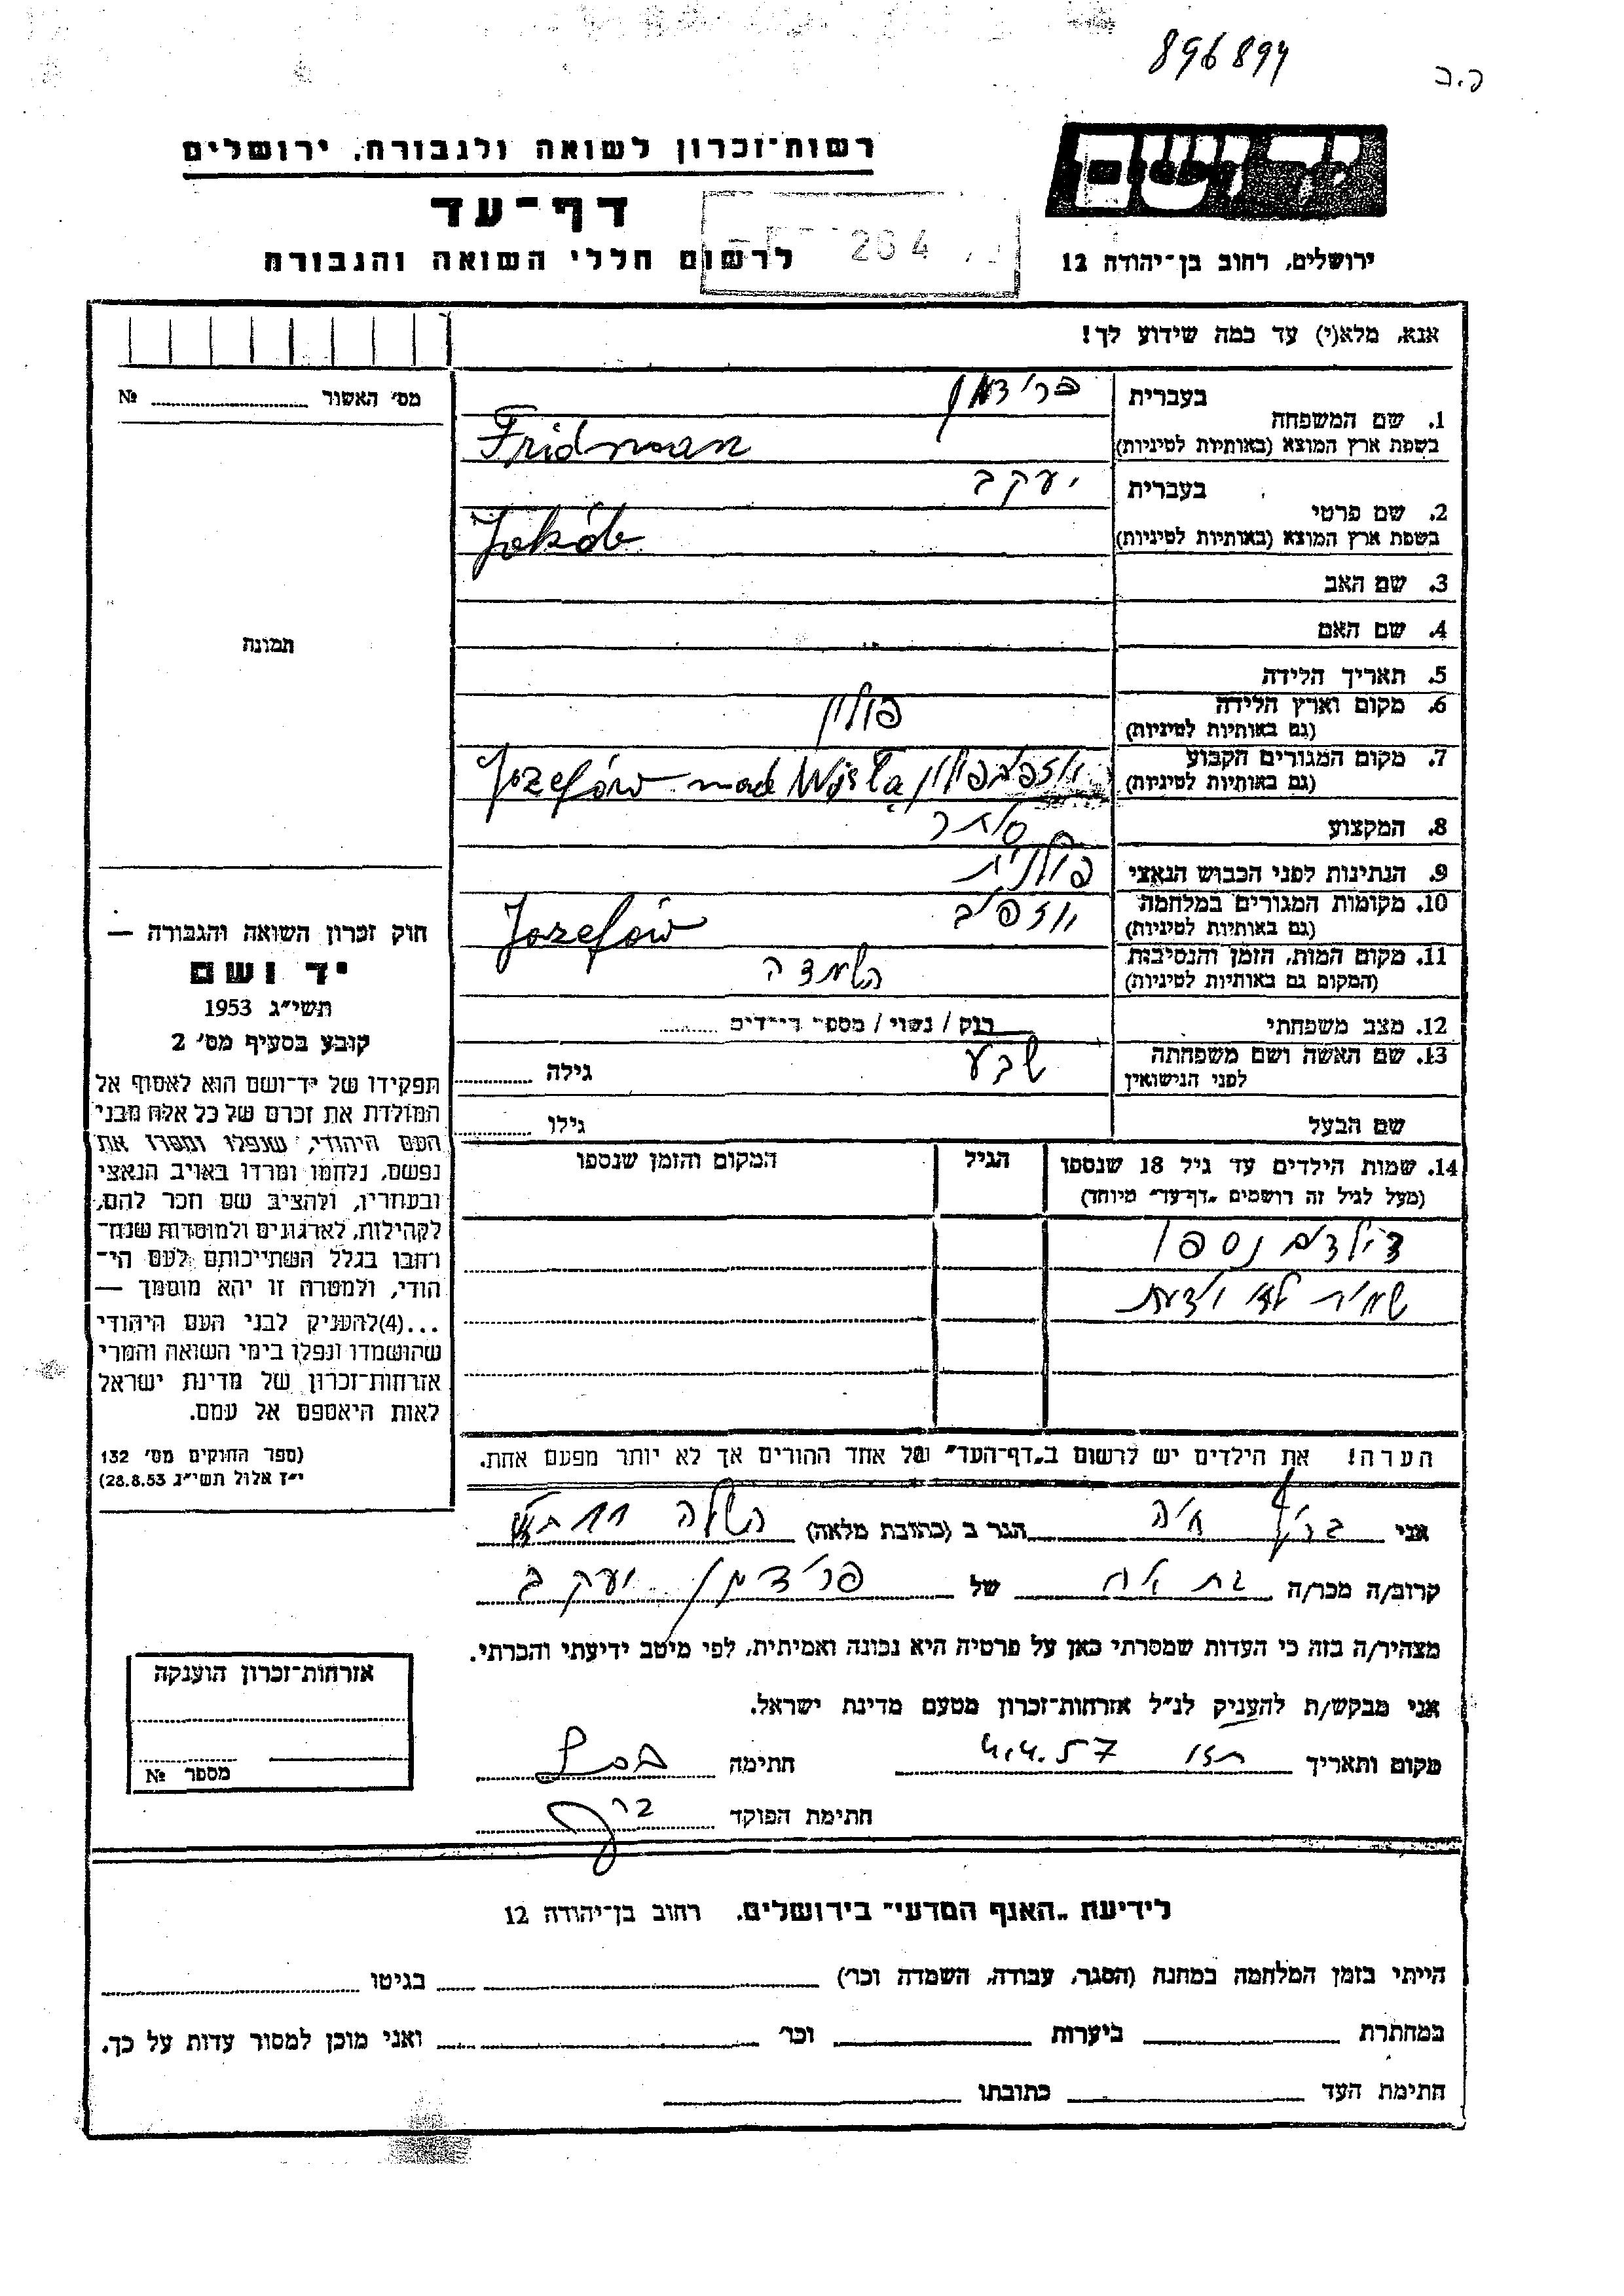 896894
פ.ב
יד ושם
רשות-זכרון לשואה ולגבורה, ירושלים
דף-עד
לרשום חללי השואה והגבורה
264
ירושלים, רחוב בן-יהודה 12
אנא, מלא(י) עד כמה שידוע לך!
מס׳ האשור №
תמונה
בעברית פרידמן
1. שם המשפחה
בשפת ארץ המוצא (באותיות לטיניות) Fridman
בעברית יעקב
2. שם פרטי
בשפת ארץ המוצא (באותיות לטיניות) Jakób
3. שם האב
4. שם האם
5. תאריך הלידה
6. מקום וארץ הלידה פולין
(גם באותיות לטיניות)
7. מקום המגורים הקבוע
(גם באותיות לטיניות) Jozefów nad Wisłą
8. המקצוע סוחר
9. הנתינות לפני הכבוש הנאצי פולנית
10. מקומות המגורים במלחמה יוזפוב Jozefów
(גם באותיות לטיניות)
11. מקום המות, הזמן והנסיבות השמדה
(המקום גם באותיות לטיניות)
12. מצב משפחתי רוק / נשוי / מספר הילדים
13. שם האשה ושם משפחתה שבע גילה
לפני הנישואין
שם הבעל גילו
14. שמות הילדים עד גיל 18 שנספו הגיל המקום והזמן שנספו
(מעל לגיל זה רושמים "דף-עד" מיוחד)
ילדים נספו
הערה! את הילדים יש לרשום ב"דף-העד" של אחד ההורים אך לא יותר מפעם אחת.
חוק זכרון השואה והגבורה —
יד ושם
תשי״ג 1953
קובע בסעיף מס׳ 2
תפקידו של יד-ושם הוא לאסוף אל
המולדת את זכרם של כל אלה מבני
העם היהודי, שנפלו ומסרו את
נפשם, נלחמו ומרדו באויב הנאצי
ובעוזריו, ולהציב שם וזכר להם,
לקהילות, לארגונים ולמוסדות שנח-
רבו בגלל השתייכותם לעם הי-
הודי, ולמטרה זו יהא מוסמך —
...(4) להעניק לבני העם היהודי
שהושמדו ונפלו בימי השואה והמרי
אזרחות-זכרון של מדינת ישראל
לאות היאספם אל עמם.
(ספר החוקים מס׳ 132
י״ז אלול תשי״ג 28.8.53)
אני חיה הגר ב (כתובת מלאה) השלה 11
קרוב/ה מכר/ה בת אח של פרידמן יעקב
מצהיר/ה בזה כי העדות שמסרתי כאן על פרטיה היא נכונה ואמיתית, לפי מיטב ידיעתי והכרתי.
אני מבקש/ת להעניק לנ״ל אזרחות-זכרון מטעם מדינת ישראל.
מקום ותאריך 4.4.57 חתימה
חתימת הפוקד
אזרחות-זכרון הוענקה
מספר №
לידיעת "האגף המדעי" בירושלים, רחוב בן-יהודה 12
הייתי בזמן המלחמה במחנה (הסגר, עבודה, השמדה וכו׳) בגיטו
במחתרת ביערות וכו׳ ואני מוכן למסור עדות על כך.
חתימת העד כתובתו